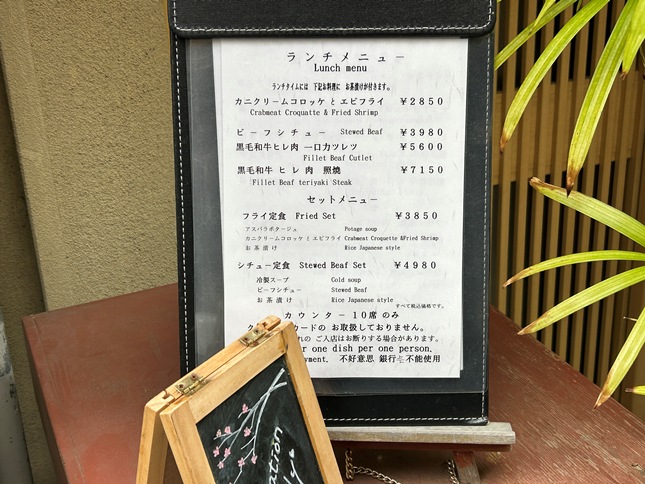 ランチメニュー
Lunch menu
ランチタイムには 下記お料理に お茶漬けが付きます。
カニクリームコロッケ と エビフライ ￥2850
Crabmeat Croquatte & Fried Shrimp
ビーフシチュー Stewed Beaf ￥3980
黒毛和牛ヒレ肉 一口カツレツ ￥5600
Fillet Beaf Cutlet
黒毛和牛 ヒレ 肉 照燒 ￥7150
Fillet Beaf teriyaki Steak
セットメニュー
フライ定食 Fried Set ￥3850
アスパラポタージュ Potage soup
カニクリームコロッケ と エビフライ Crabmeat Croquatte &Fried Shrimp
お 茶 漬 け Rice Japanese style
シチュー定食 Stewed Beaf Set ￥4980
冷製スープ Cold soup
ビーフシチュー Stewed Beaf
お 茶 漬 け Rice Japanese style
すべて税込価格です。
カウンター 10席 のみ
カードの お取扱しておりません。
の ご入店はお断りする場合があります。
one dish per one person.
不好意思 銀行 不能使用